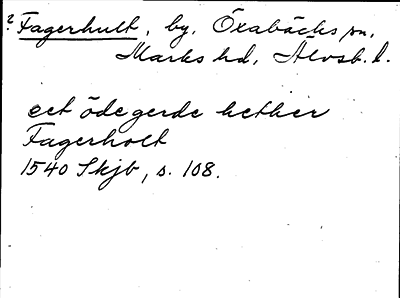 ? Fagerhult, by. Öxabäcks sn.
Marks hd, Älvsb. l.
eet öde gerde hether
Fagerholt
1540 Skjb, s. 108.